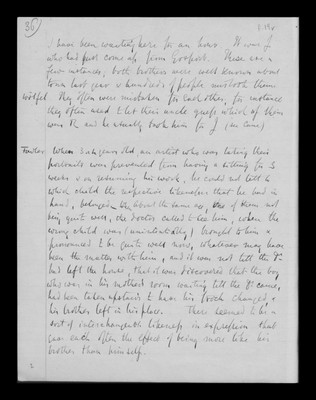 36
I have been wanting here for an hour. It was J
who had just come up from Gosport. These are a
few instances, both brothers were well known about
town last year & hundreds of people mistook them
They often were mistaken for each other, for instance
they often used to let their uncle guess which of them
was R and he usually took him for J
Fowler When years old, an artist who was taking their
portraits was prevented from having a sitting for 3
weeks & on resuming his work, he could not tell to
which child the respective likenesses that he had in
hand, belonged. When about the same age, one of them not
being quite well, the doctor called to see him, when the
wrong child was (unintentionally) brought to him &
pronounced to be quite well now, whatever may have
been the matter with him, and it was not till the Dr
had left the house, that it was discovered that the boy
who was in his mother's room waiting till the Dr came,
had been taken upstairs to have his frock changed &
his brother left in his place. There seemed to be a
sort of interchangeable likeness in expression that
gave each often the effect of being more like his
brother than himself.